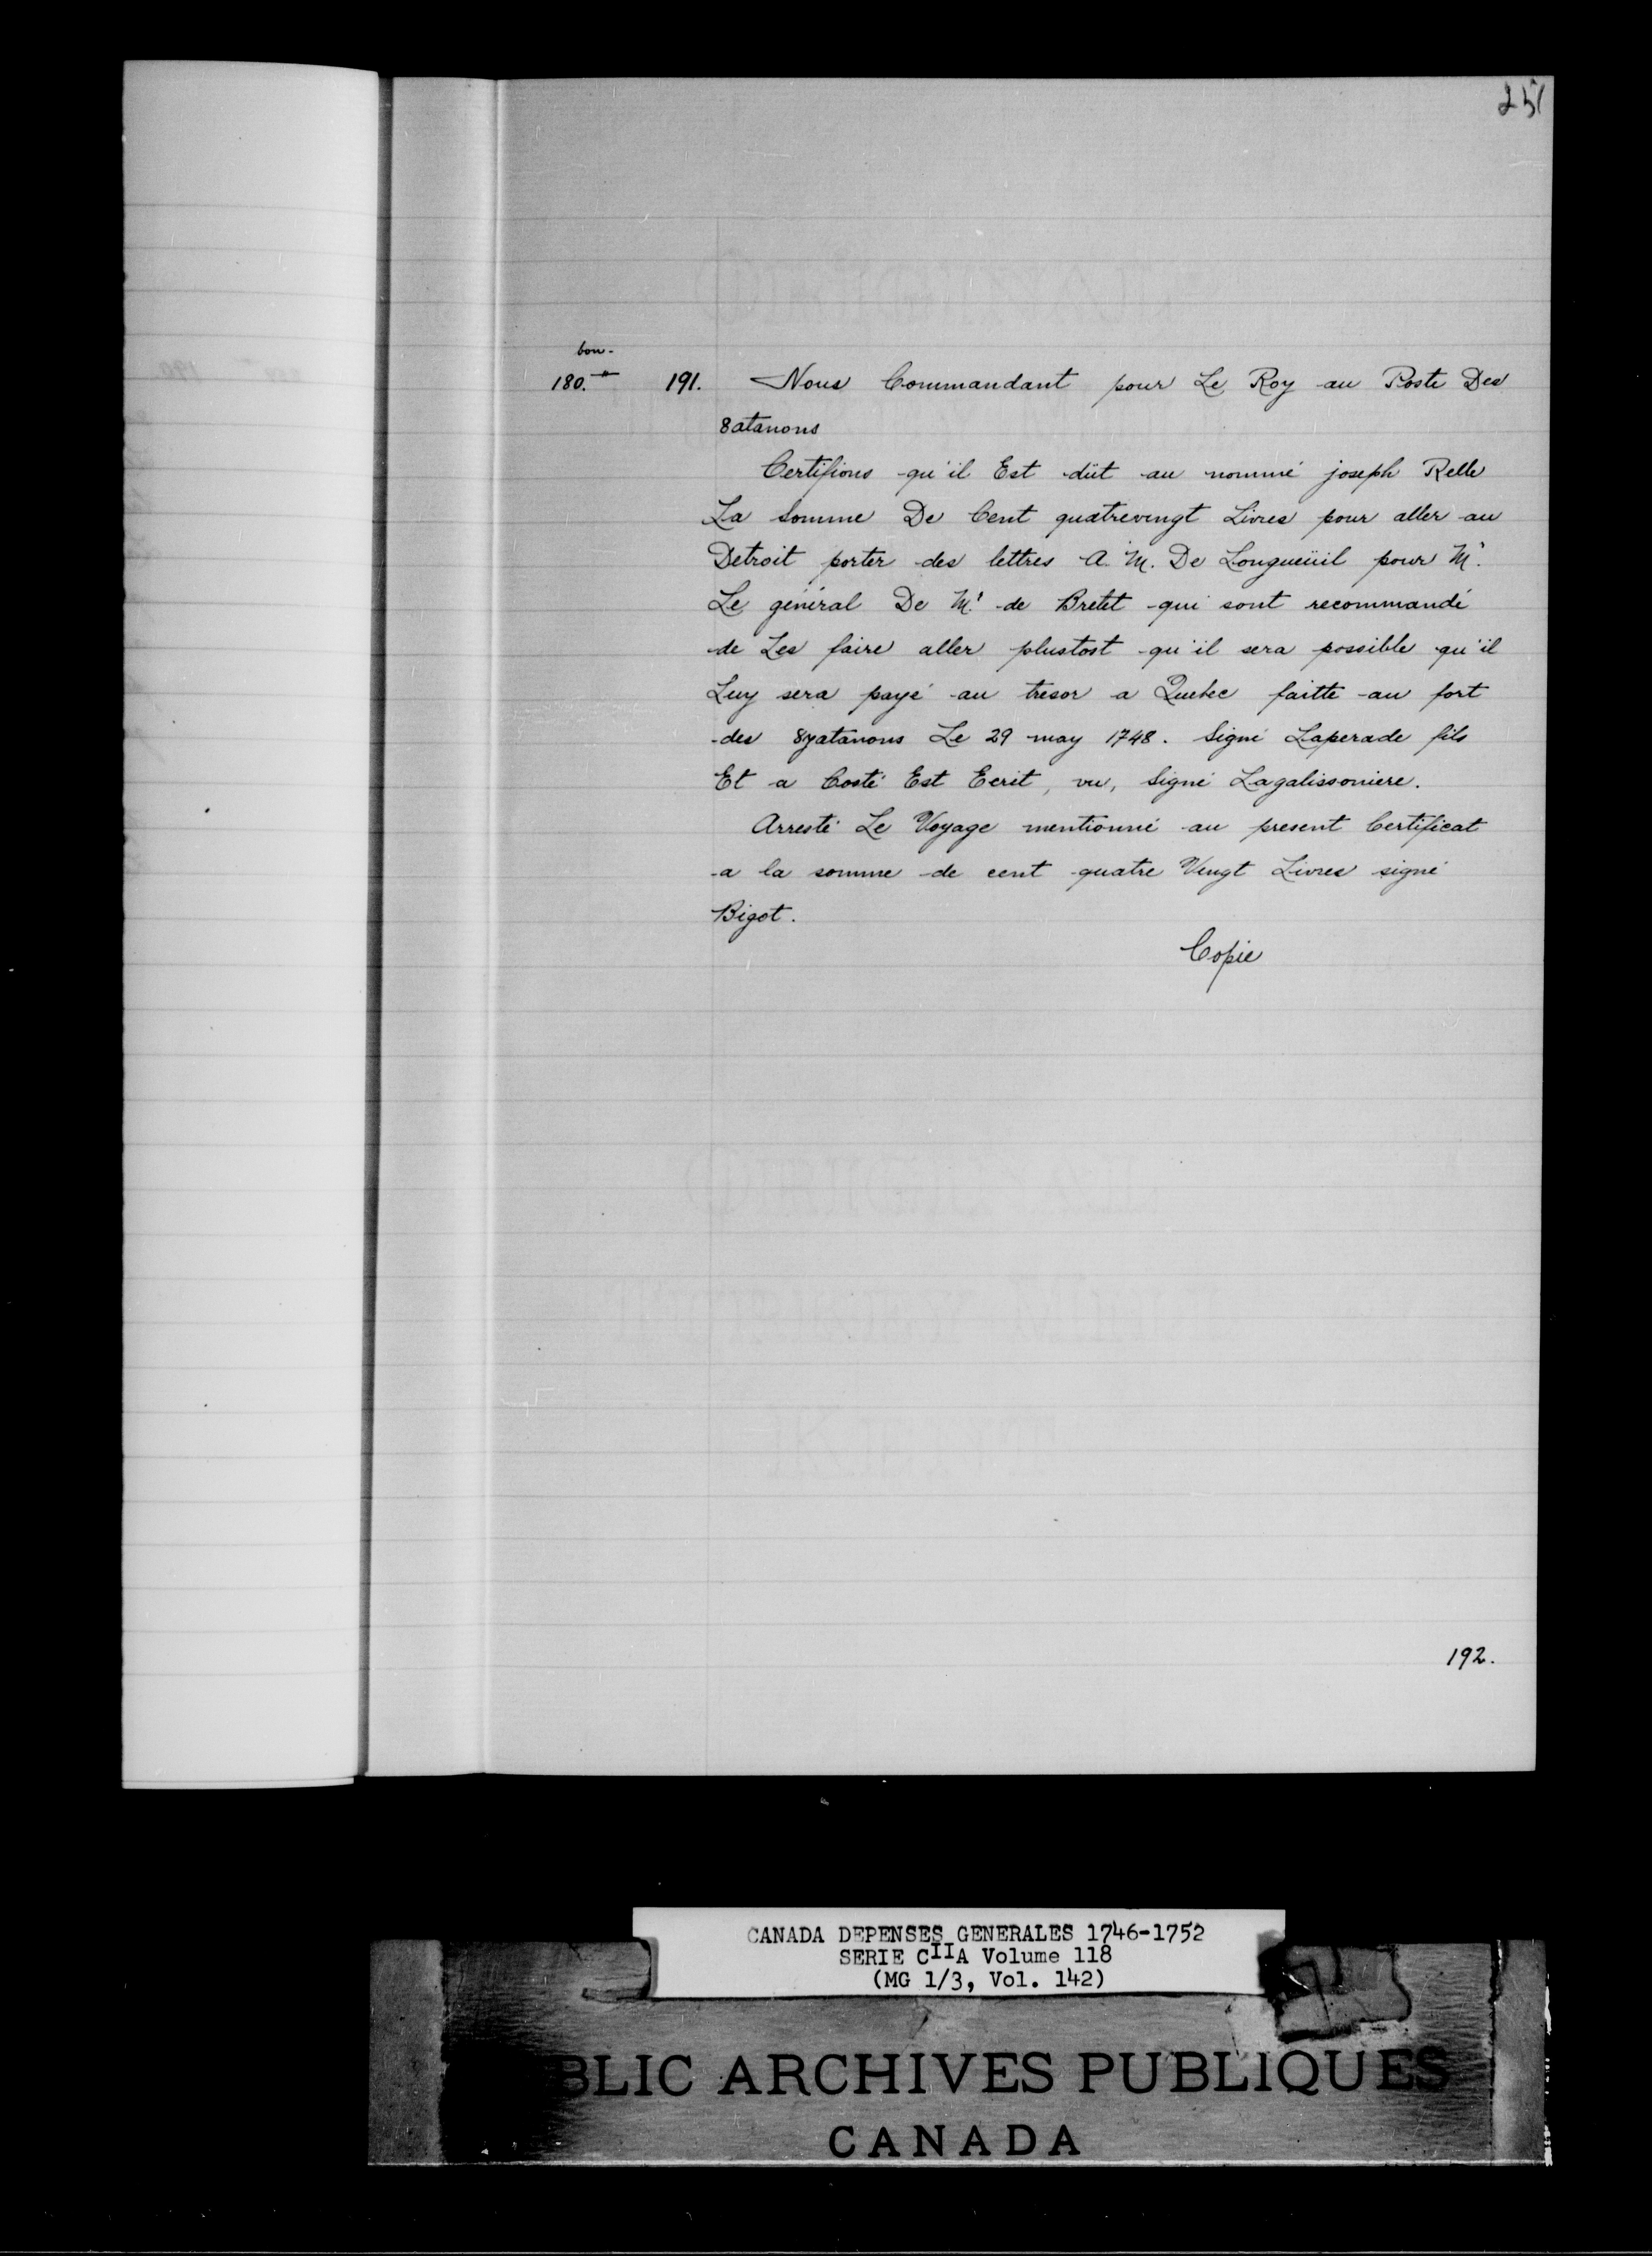 251
bon.
180.# 191. Nous Commandant pour Le Roy au Poste Des
8atanons
Certifions qu'il Est düt au nommé joseph Relle
La Somme De Cent quatrevingt Livres pour aller au
Detroit porter des lettres A M. De Longueüil pour Mr.
Le général De Mr. de Bretet qui sont recommandé
de Les faire aller plustost qu'il sera possible qu'il
Luy sera payé au tresor a Quebec faitte au fort
des 8yatanons Le 29 may 1748. Signé Laperade fils
Et a Costé Est Ecrit, vu, Signé Lagalissoniere.
Arresté Le Voyage mentionné au present Certificat
a la somme de cent quatre Vingt Livres signé
Bigot.
Copie
192.
CANADA DEPENSES GENERALES 1746-1752
SERIE CIIA Volume 118
(MG 1/3, Vol. 142)
BLIC ARCHIVES PUBLIQUES
CANADA